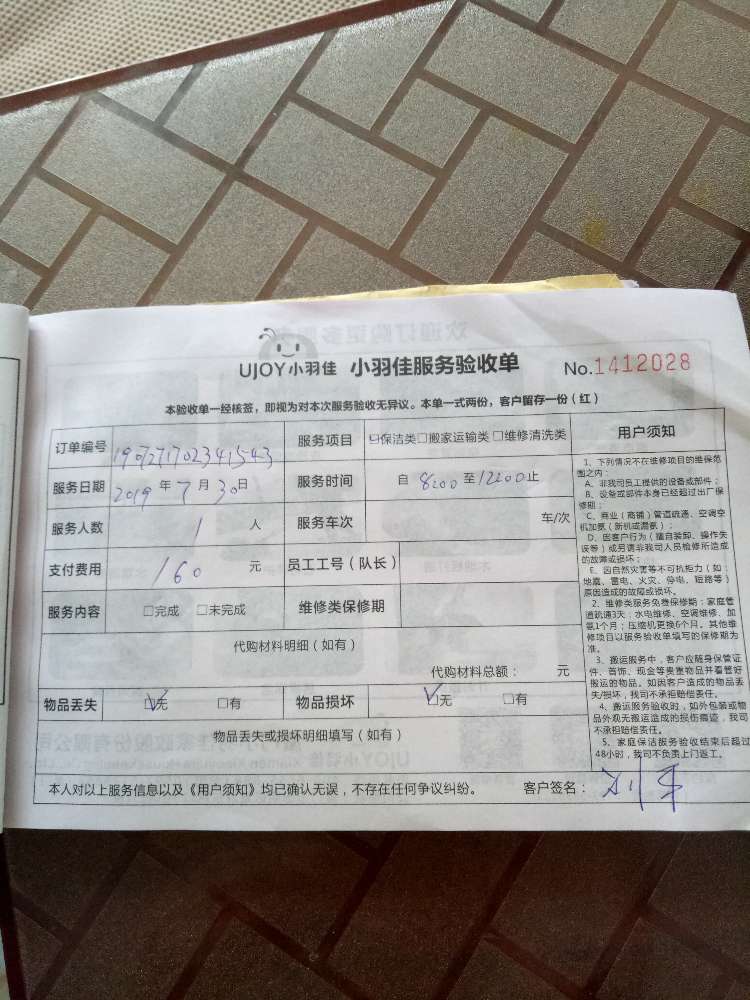 UJOY小羽佳 小羽佳服务验收单 No.1412028
本验收单一经核签，即视为对本次服务验收无异议。本单一式两份，客户留存一份（红）
订单编号 1907271702341543 服务项目 ☑保洁类□搬家运输类□维修清洗类
服务日期 2019年7月30日 服务时间 自 8:00 至 12:00 止
服务人数 1 人 服务车次 车/次
支付费用 160 元 员工工号（队长）
服务内容 □完成 □未完成 维修类保修期
代购材料明细（如有）
代购材料总额： 元
物品丢失 ☑无 □有 物品损坏 ☑无 □有
物品丢失或损坏明细填写（如有）
用户须知
1、下列情况不在维修项目的维保范
围之内：
A、非我司员工提供的设备或部件；
B、设备或部件本身已经超过出厂保
修期；
C、商业（商铺）管道疏通、空调空
机加氨（新机或漏氨）；
D、因客户行为（擅自装卸、操作失
误等）或另请非我司人员检修所造成
的故障或损坏；
E、因自然灾害等不可抗拒力（如：
地震、雷电、火灾、停电、短路等）
原因造成的故障或损坏。
2、维修类服务免费保修期：家庭管
道疏通3天，水电维修、空调维修、加
氨1个月；压缩机更换6个月。其他维
修项目以服务验收单填写的保修期为
准。
3、搬运服务中，客户应随身保管证
件、首饰、现金等贵重物品并看管好
搬运的物品。如因客户造成的物品丢
失/损坏，我司不承担赔偿责任。
4、搬运服务验收时，如外包装或物
品外观无搬运造成的损伤痕迹，我司
不承担赔偿责任。
5、家庭保洁服务验收结束后超过
48小时，我司不负责上门返工。
本人对以上服务信息以及《用户须知》均已确认无误，不存在任何争议纠纷。 客户签名：